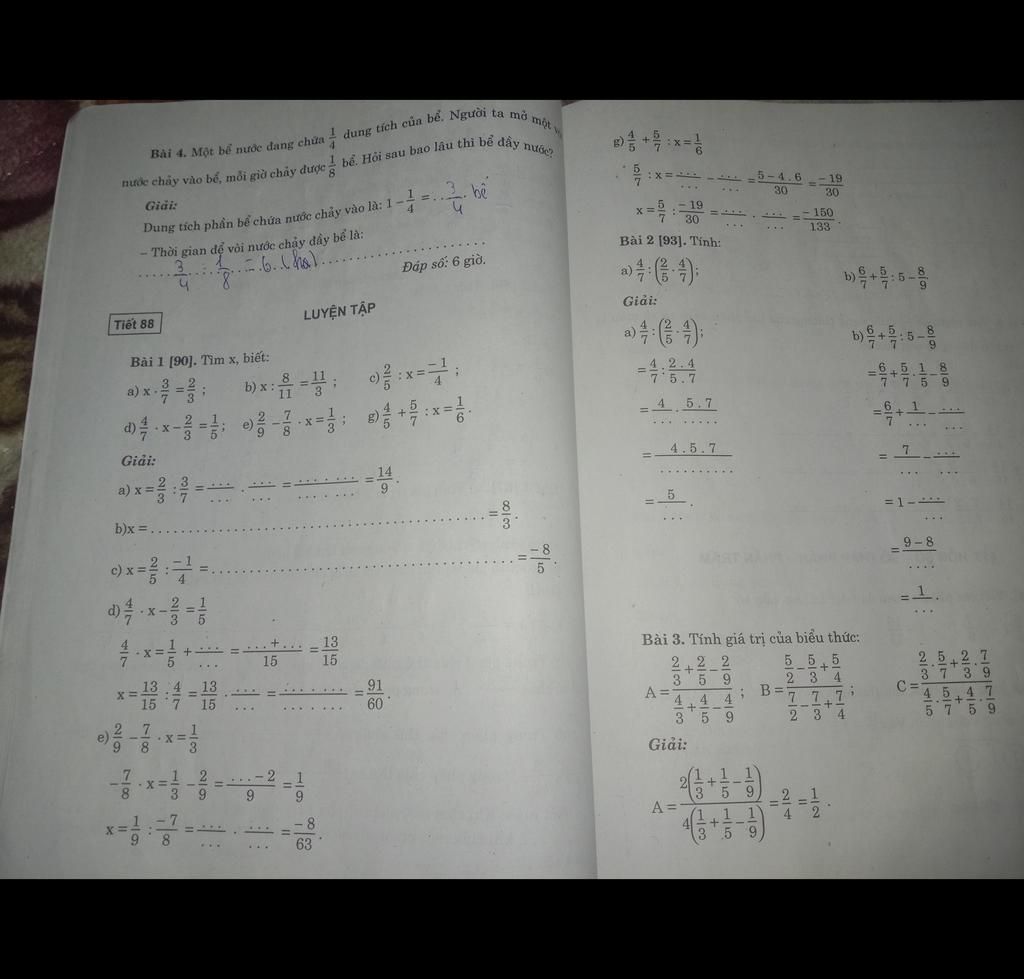 Bài 4. Một bể nước đang chứa 1/4 dung tích của bể. Người ta mở một
nước chảy vào bể, mỗi giờ chảy được 1/8 bể. Hỏi sau bao lâu thì bể đầy nước?
Giải:
Dung tích phần bể chứa nước chảy vào là: 1 − 1/4 = ..3/4. bể
– Thời gian để vòi nước chảy đầy bể là:
..... 3/4 : 1/8 = 6 ( ) .....
Đáp số: 6 giờ.
Tiết 88
LUYỆN TẬP
Bài 1 [90]. Tìm x, biết:
a) x · 3/7 = 2/3 ; b) x : 8/11 = 11/3 ; c) 2/5 : x = −1/4 ;
d) 4/7 · x − 2/3 = 1/5 ; e) 2/9 − 7/8 · x = 1/3 ; g) 4/5 + 5/7 : x = 1/6 .
Giải:
a) x = 2/3 : 3/7 = .../... · .../... = ... ... / ... ... = 14/9 .
b)x = .................................................. = 8/3 .
c) x = 2/5 : −1/4 = .................................................. = −8/5 .
d) 4/7 · x − 2/3 = 1/5
4/7 · x = 1/5 + .../... = ...+.../15 = 13/15
x = 13/15 : 4/7 = 13/15 · .../... = ... ... / ... ... = 91/60 .
e) 2/9 − 7/8 · x = 1/3
−7/8 · x = 1/3 − 2/9 = ...−2/9 = 1/9
x = 1/9 : −7/8 = .../... · .../... = −8/63 .
g) 4/5 + 5/7 : x = 1/6
5/7 : x = .../... − .../... = 5−4.6/30 = −19/30
x = 5/7 : −19/30 = .../... · .../... = −150/133 .
Bài 2 [93]. Tính:
a) 4/7 : (2/5 · 4/7) ; b) 6/7 + 5/7 : 5 − 8/9
Giải:
a) 4/7 : (2/5 · 4/7) ; b) 6/7 + 5/7 : 5 − 8/9
= 4/7 : 2.4/5.7 = 6/7 + 5/7 · 1/5 − 8/9
= 4/... · 5.7/..... = 6/7 + 1/... − .../...
= 4.5.7/.......... = 7/... − .../...
= 5/... . = 1 − .../...
= 9−8/....
= 1/... .
Bài 3. Tính giá trị của biểu thức:
A = (2/3 + 2/5 − 2/9)/(4/3 + 4/5 − 4/9) ; B = (5/2 − 5/3 + 5/4)/(7/2 − 7/3 + 7/4) ; C = (2/3 · 5/7 + 2/3 · 7/9)/(4/5 · 5/7 + 4/5 · 7/9)
Giải:
A = 2(1/3 + 1/5 − 1/9)/4(1/3 + 1/5 − 1/9) = 2/4 = 1/2 .